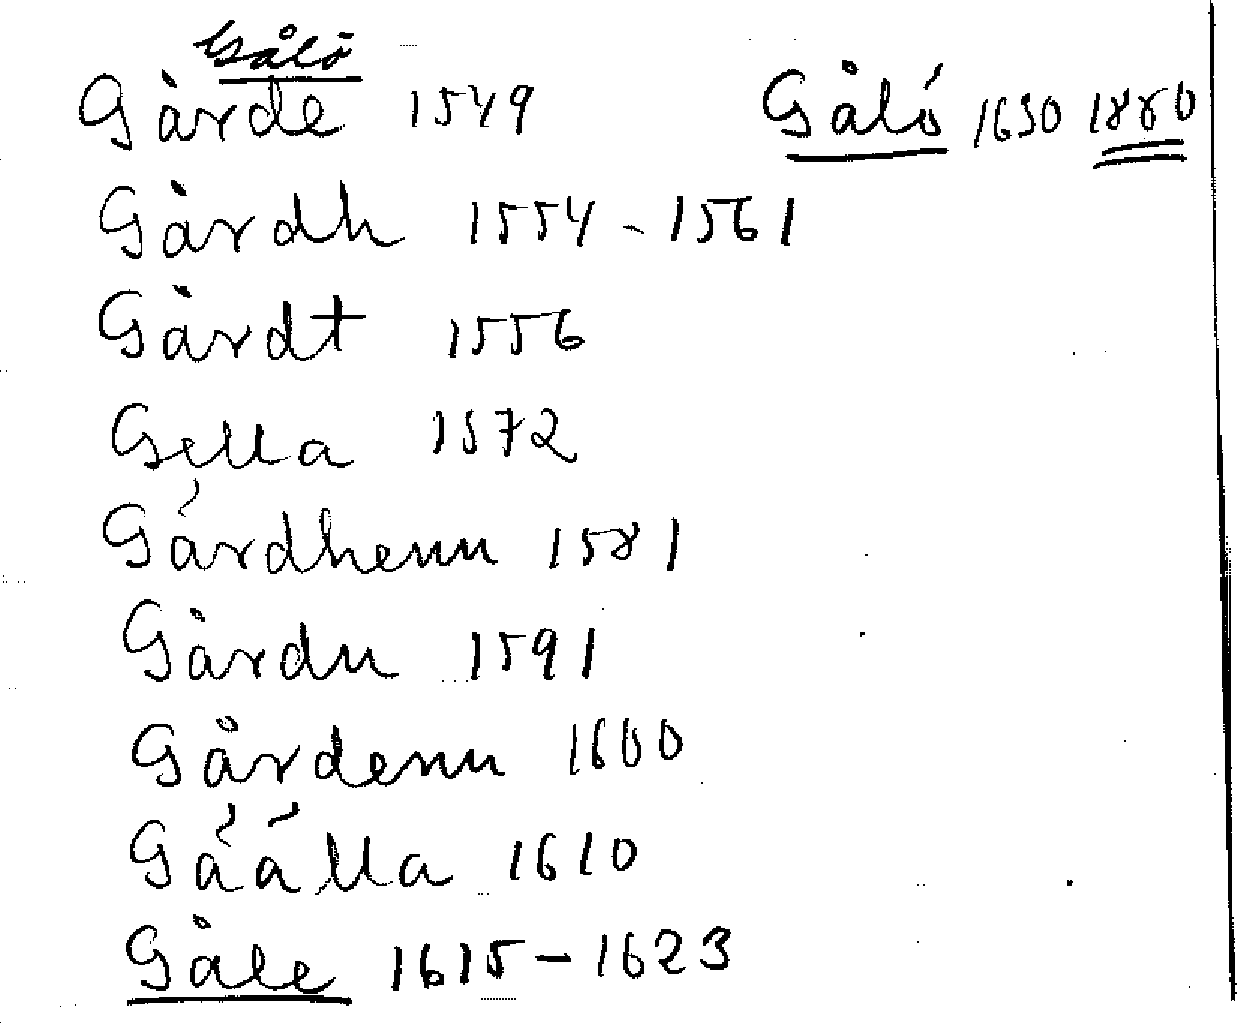 Gålö
Gårde 1549
Gålö 1630 1860
Gårdh 1554-1561
Gårdt 1556
Gella 1572
Gårdhenn 1581
Gårdn 1591
Gårdenn 1600
Gåålla 1610
Gåle 1615-1623